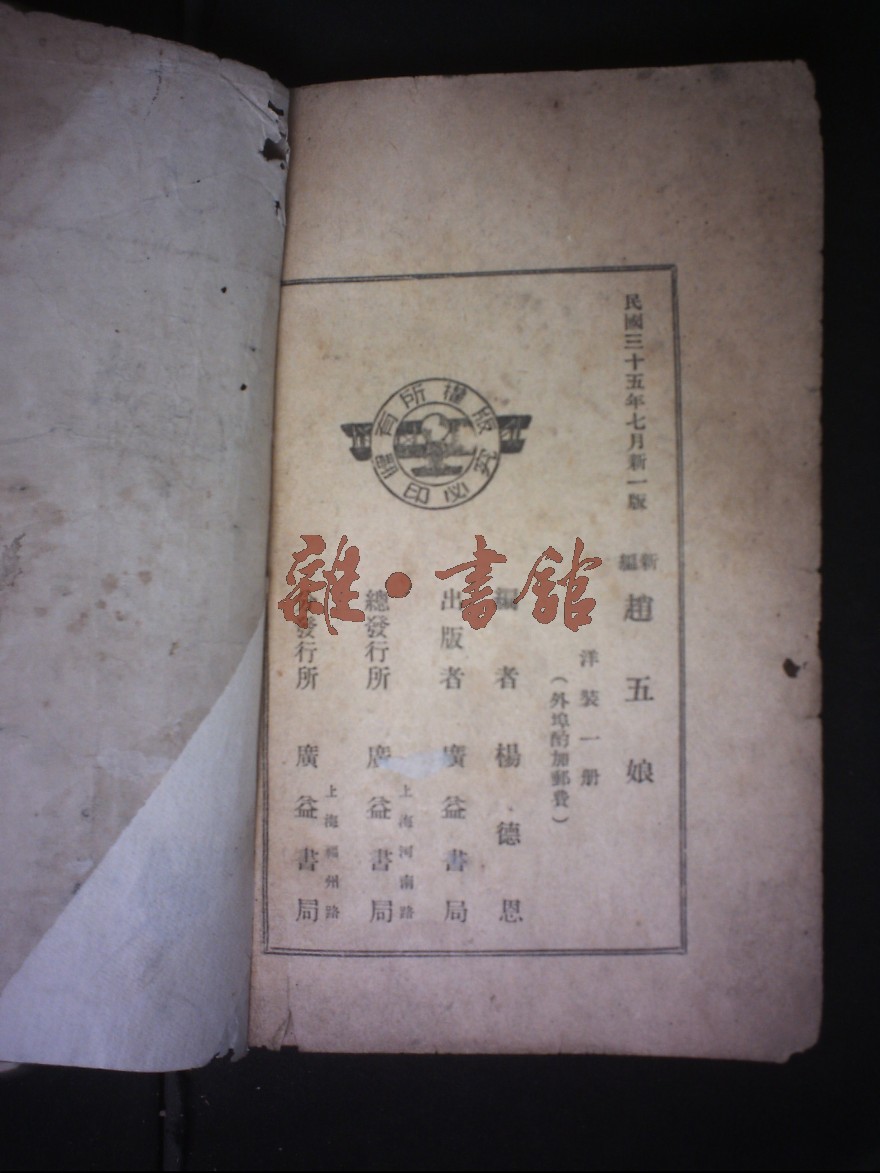 民國三十五年七月新一版
新編
趙五娘
洋裝一册
(外埠酌加郵費)
編者 楊德恩
出版者 廣益書局
上海河南路
總發行所 廣益書局
上海福州路
分發行所 廣益書局
版權所有
翻印必究
雜·書館